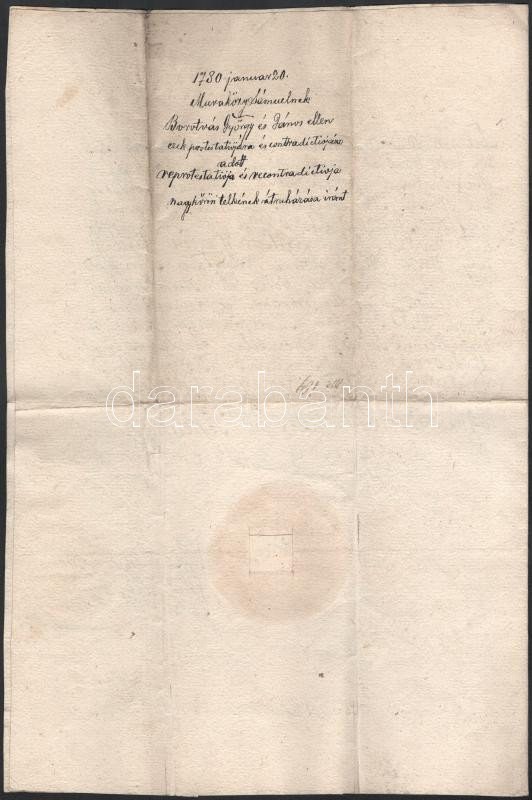 1780 januar 20.
Muraközy Sámuelnek
Borotvás György és János ellen
ezek postestatiójára és contradictiójára
adott
reprotestatiója és recontradictioja
nagykőrösi telkének átruházása iránt
darabanth